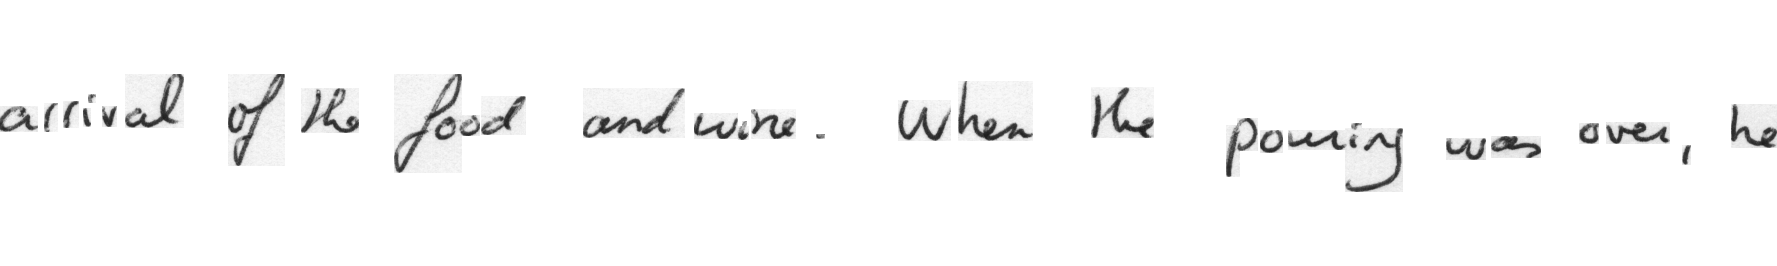 arrival of the food and wine. When the pouring was over, he